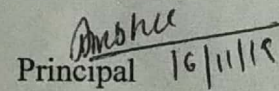 Principal 16/11/19